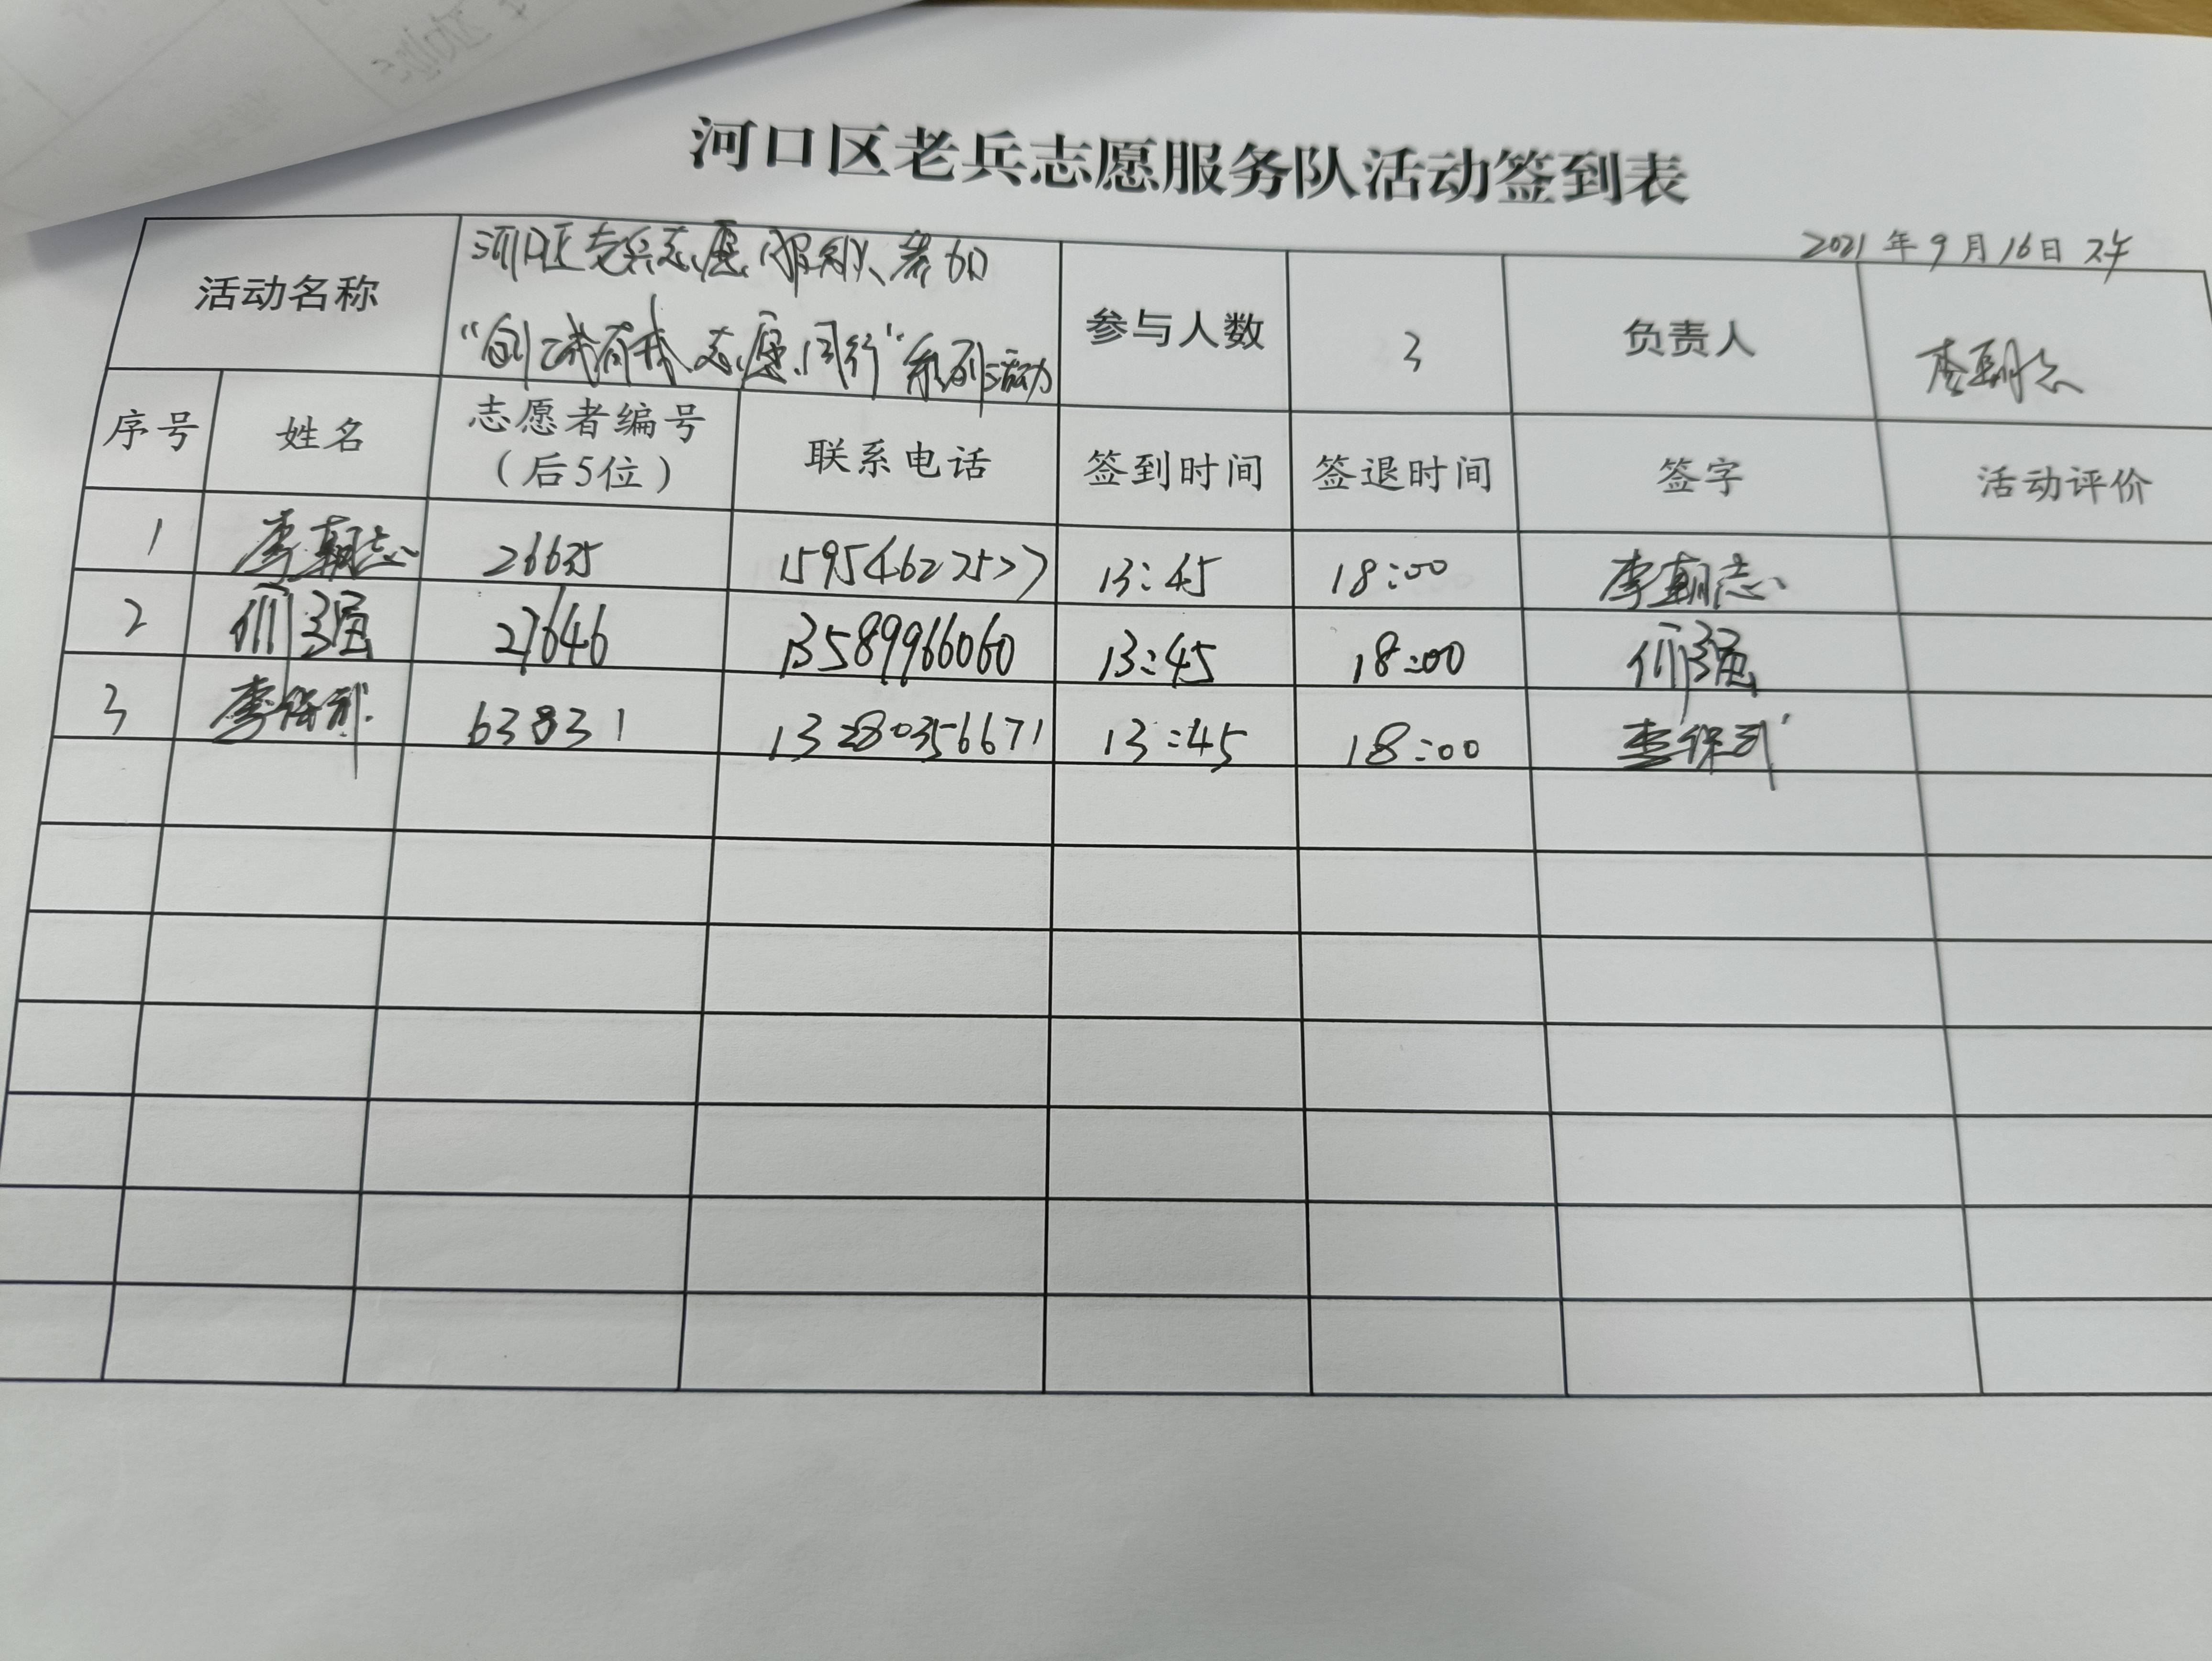 河口区老兵志愿服务队活动签到表
2021年9月16日 下午
活动名称
河口区老兵志愿服务队参加
“创城有我 志愿同行”系列活动
参与人数 3 负责人 李朝志
序号 姓名 志愿者编号 联系电话 签到时间 签退时间 签字 活动评价
（后5位）
1 李朝志 26635 13:45 18:00 李朝志
2 强 27646 13589966060 13:45 18:00 强
3 李保武 63831 13280356671 13:45 18:00 李保武